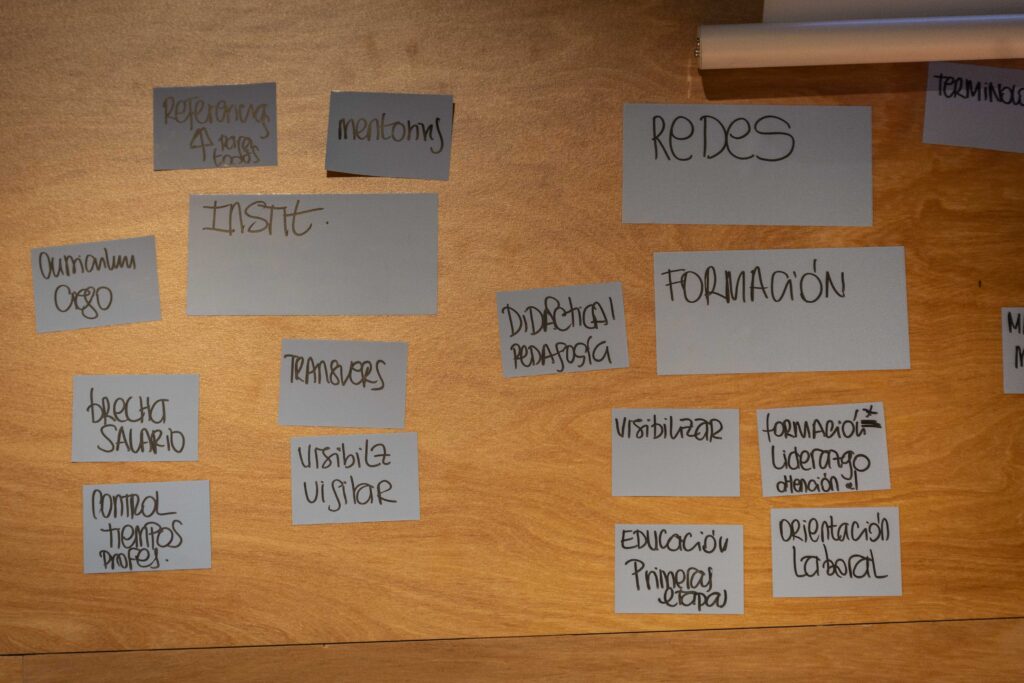 Referencias
para
todos
mentorias
REDES
TERMINOLO
INSTIT.
Curriculum
ciego
FORMACIÓN
DIDÁCTICA/
PEDAGOGÍA
TRANSVERS
brecha
SALARIO
VISIBILIZ
VIGILAR
VISIBILIZAR
FORMACIÓN
Liderazgo
atención
CONTROL
TIEMPOS
PROFES.
EDUCACIÓN
Primeras
etapas
ORIENTACIÓN
Laboral